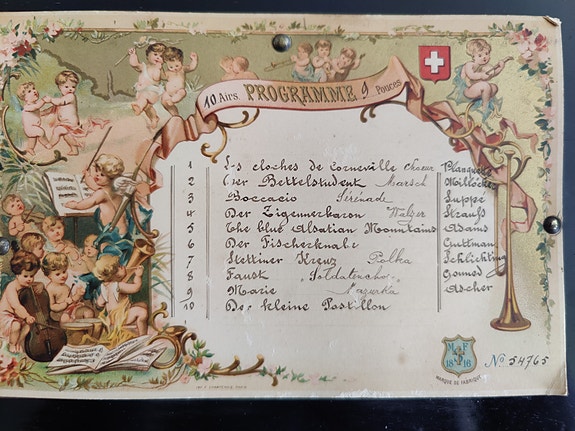 10 Airs. PROGRAMME. 9 Pouces
1 Les cloches de Corneville Choeur Planquette
2 Der Bettelstudent Marsch Millöcker
3 Boccacio Sérénade Suppé
4 Der Zigeunerbaron Walzer Strauss
5 The blue Alsatian Mountains Adams
6 Der Fischerknabe Guttman
7 Stettiner Kreuz Polka Schlichting
8 Faust "Soldatencho" Gounod
9 Marie Mazurka Ascher
10 Der kleine Postillon
M F
18 16
MARQUE DE FABRIQUE
No. 54765